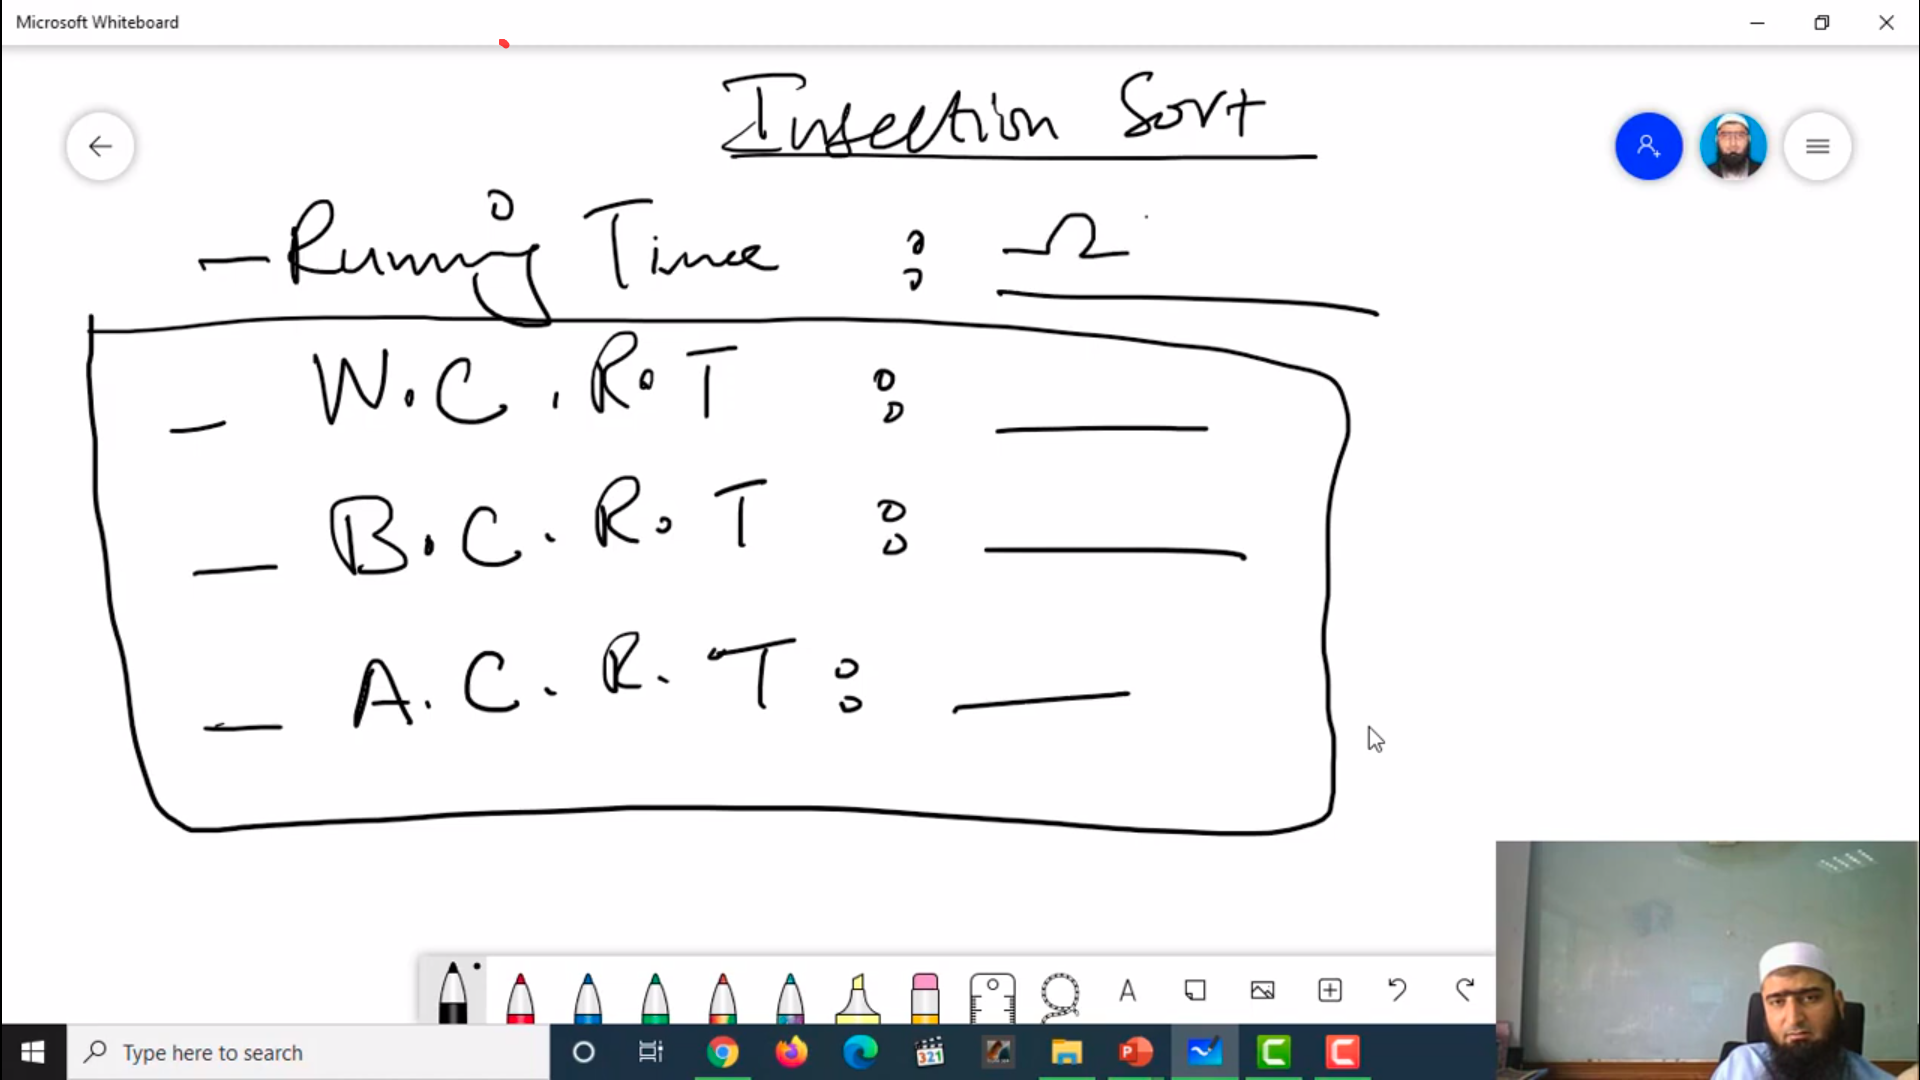 Microsoft Whiteboard
Insertion Sort
- Running Time : Ω
- W.C.R.T :
- B.C.R.T :
- A.C.R.T :
A
321
Type here to search